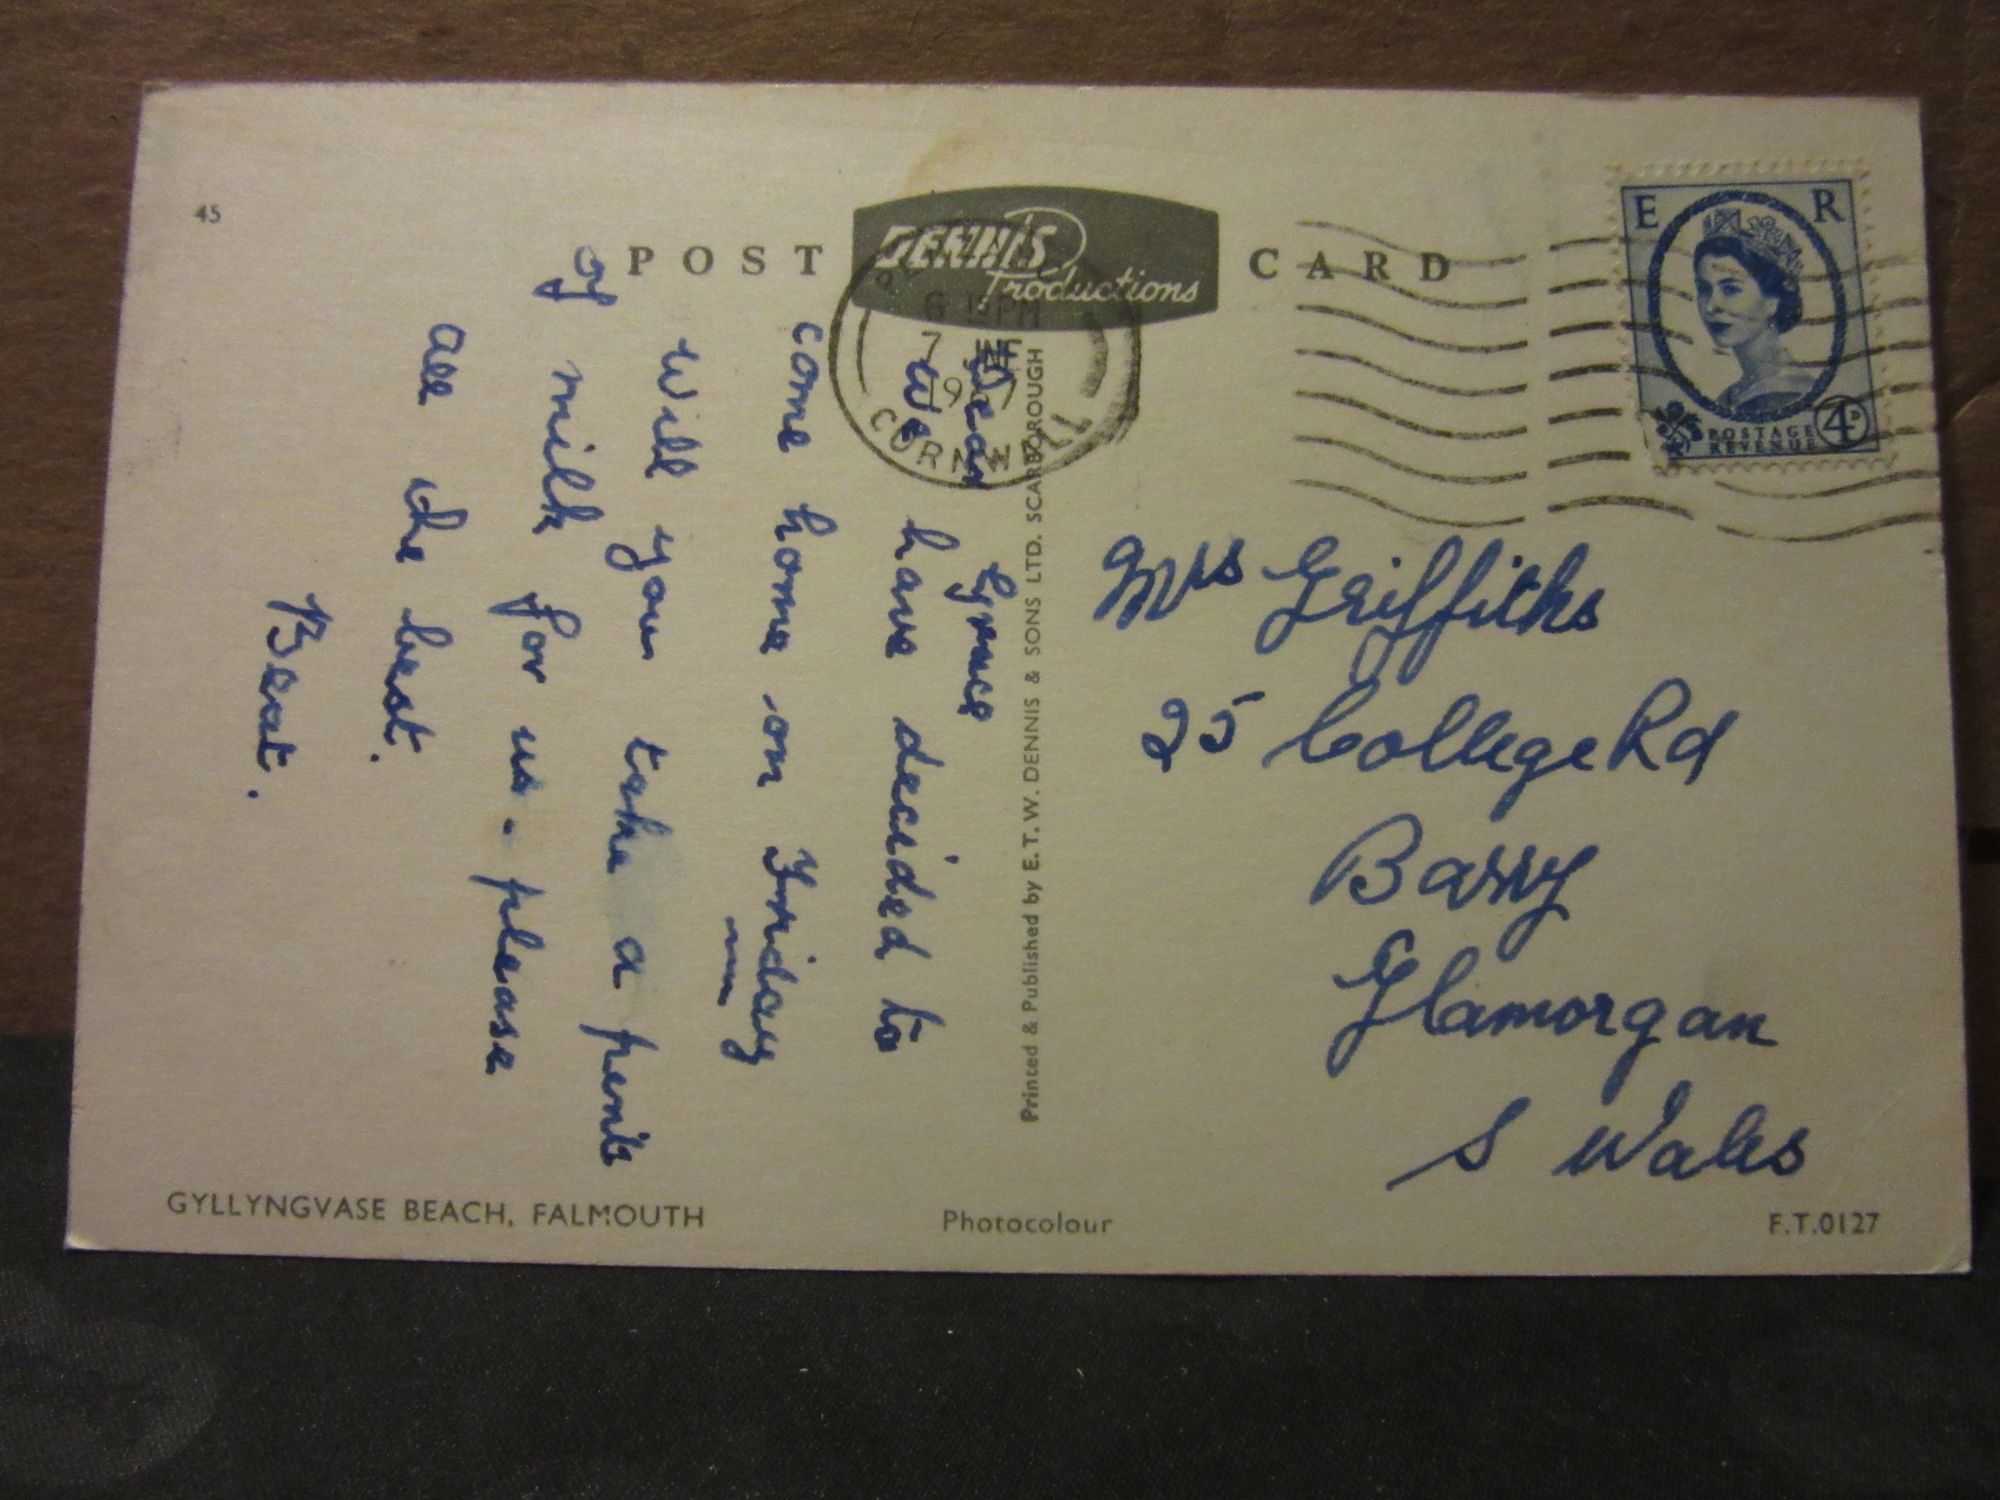 45
POST CARD
DENNIS
Productions
6 15 PM
7 JNE
CORNWALL
E R
POSTAGE
REVENUE
4D
Dear Grace
We have decided to
come home on Friday
will you take a pint
of milk for us. please
all the best.
Beat.
Printed & Published by E. T. W. DENNIS & SONS LTD. SCARBOROUGH
Mrs Griffiths
25 College Rd
Barry
Glamorgan
S Wales
GYLLYNGVASE BEACH, FALMOUTH
Photocolour
F.T.0127